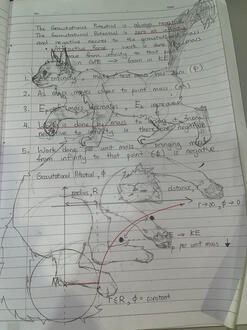 The Gravitational Potential is always negative
The Gravitational Potential is zero at
and negative nearer to the gravitational mass
• Attractive Force work is done
move from infinity to that point
in GPE → Gain in KE
1. At infinity, test mass has zero
2. As mass moves closer to point mass (m)
3. Ep decreases Ek increases
4. Work is done by mass
relative to infinity is therefore negative
5. Work done per unit mass bringing mass
from infinity to that point (ϕ) is negative
Gravitational Potential, ϕ
radius, R
distance, r
r→∞, ϕ→0
GPE → KE
Ep per unit mass ↓
M
r ≤ R, ϕ = constant